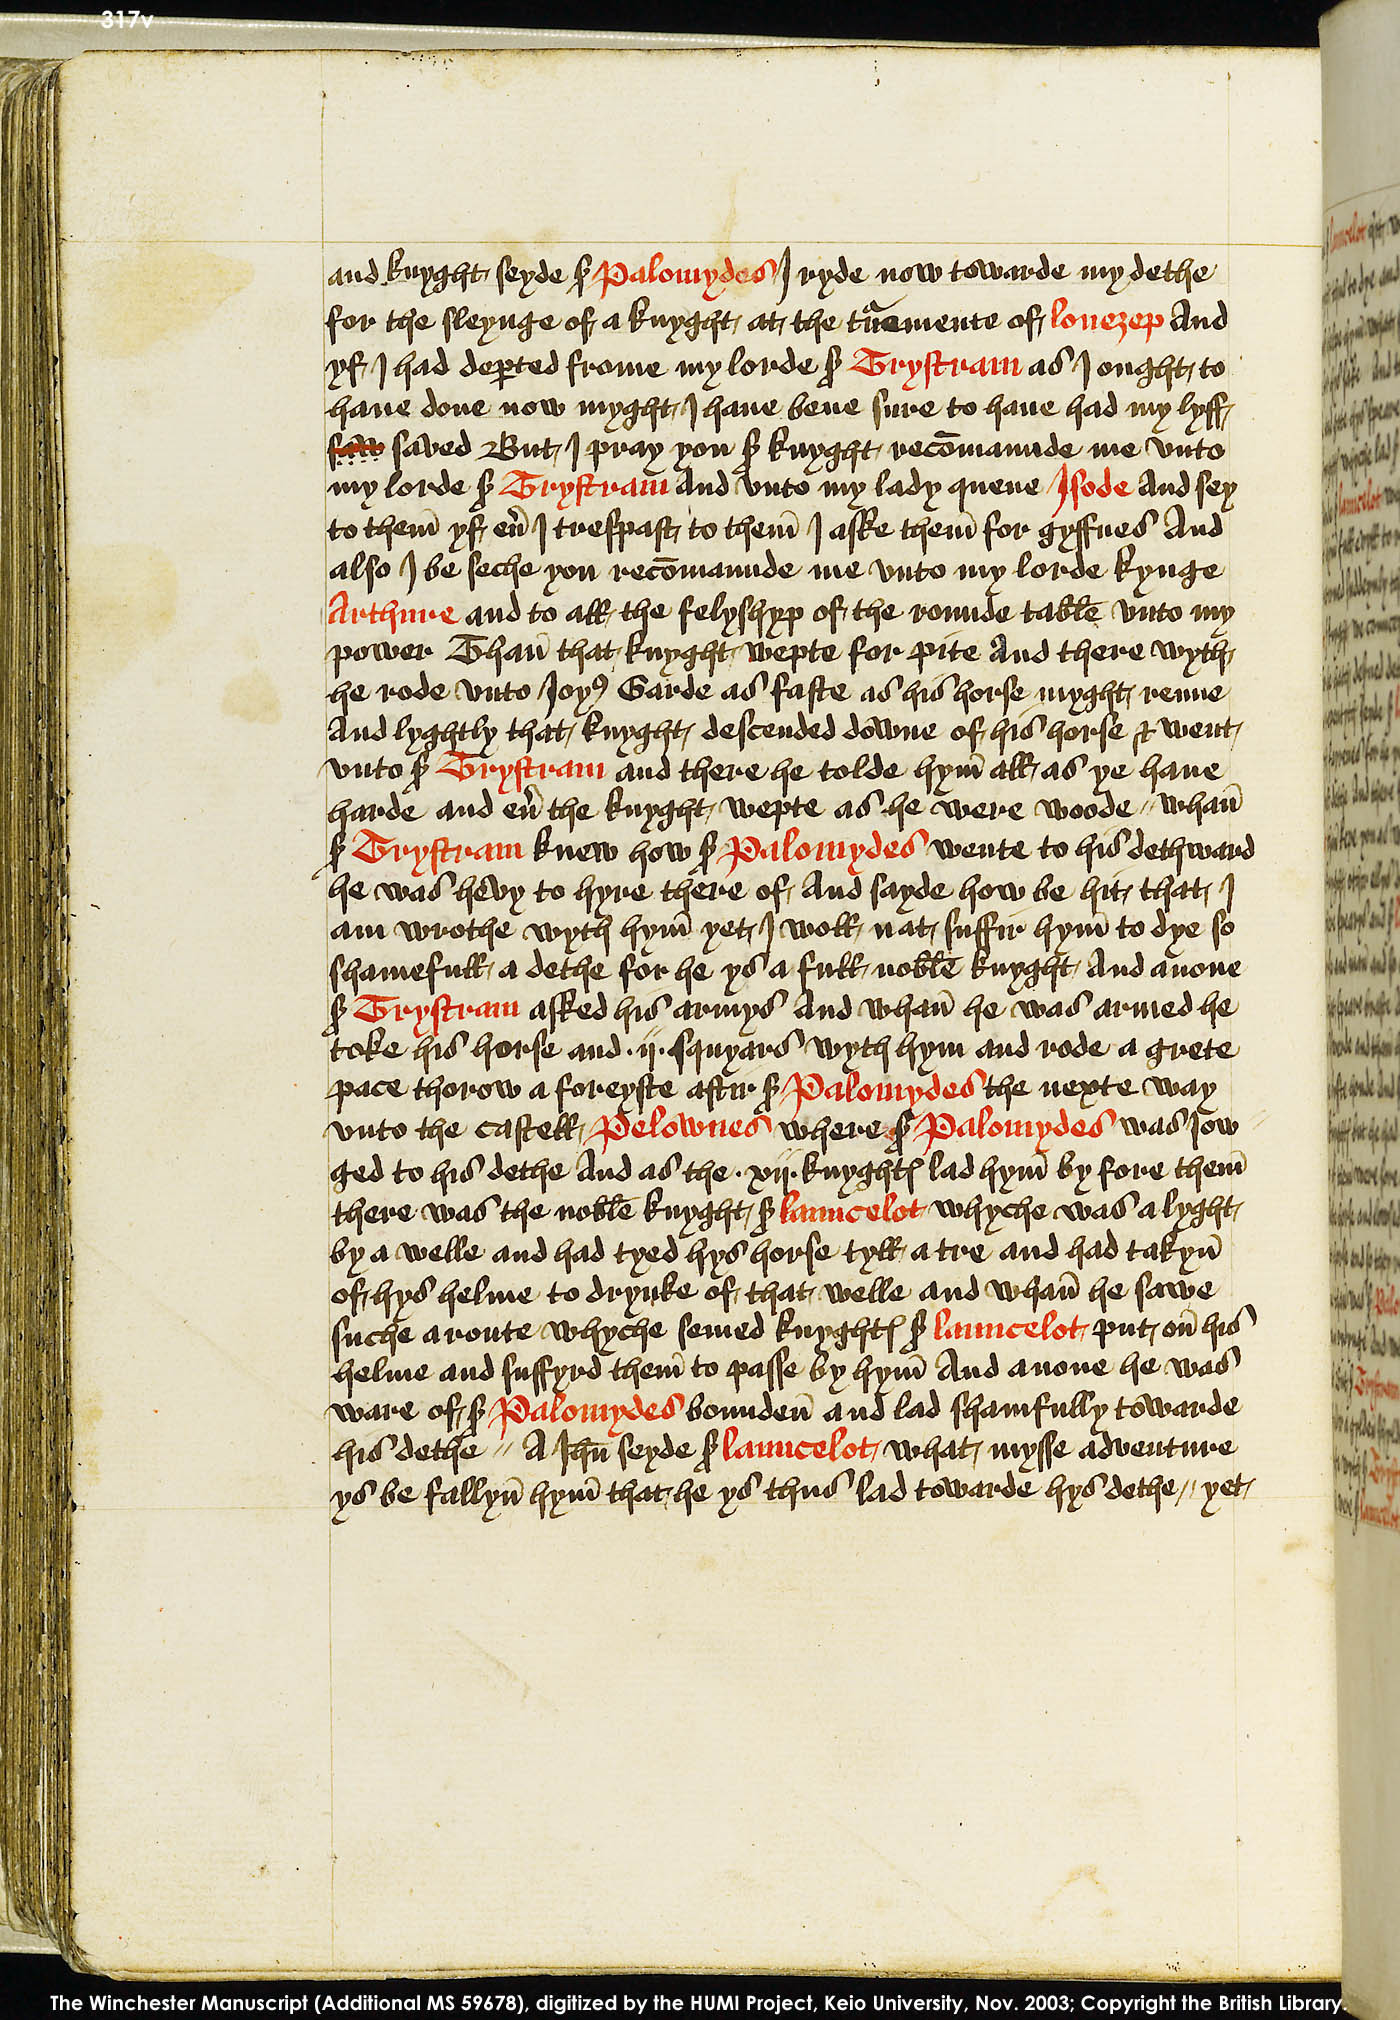 317v
and knyght seyde sir Palomydes I ryde now towarde my dethe
for the sleynge of a knyght at the turnemente of lonezep And
yf I had deꝑted frome my lorde sir Trystram as I ought to
haue done now myght I haue bene sure to haue had my lyff
saved But I pray you sir knyght recōmaunde me vnto
my lorde sir Trystram And vnto my lady quene Isode And sey
to them̄ yf eu̾ I trespast to them̄ I aske them̄ for gyffnes And
also I be seche you recōmaunde me vnto my lorde kynge
Arthure and to all the felyshyp of the rounde table vnto my
power Than̄ that knyght wepte for pite And there wyth
he rode vnto Joyꝰ Garde as faste as his horse myght renne
And lyghtly that knyght descended downe of his horse & went
vnto sir Trystram and there he tolde hym̄ all as ye haue
harde and eu̾ the knyght wepte as he were woode // whan̄
sir Trystram knew how sir Palomydes wente to his dethward
he was hevy to hyre there of And sayde how be hit that I
am wrothe wyth hym̄ yet I woll nat suffir hym̄ to dye so
shamefull a dethe for he ys a full noble knyght And anone
sir Trystram asked his armys And whan̄ he was armed he
toke his horse and ·ij· squyars wyth hym and rode a grete
pace thorow a foreyste aftir sir Palomydes the nexte way
vnto the castell Pelownes where sir Palomydes was Jow //
ged to his dethe And as the ·xij· knyghtꝭ lad hym̄ by fore them̄
there was the noble knyght sir launcelot whyche was a lyght
by a welle and had tyed hys horse tyll a tre and had takyn̄
of hys helme to drynke of that welle and whan̄ he sawe
suche a route whyche semed knyghtꝭ sir launcelot put on̄ his
helme and suffyrd them̄ to passe by hym̄ And anone he was
ware of sir Palomydes bounden̄ and lad shamfully towarde
his dethe // A Ihū seyde sir launcelot what mysse adventure
ys be fallyn̄ hym̄ that he ys thus lad towarde hys dethe // yet
The Winchester Manuscript (Additional MS 59678), digitized by the HUMI Project, Keio University, Nov. 2003; Copyright the British Library.